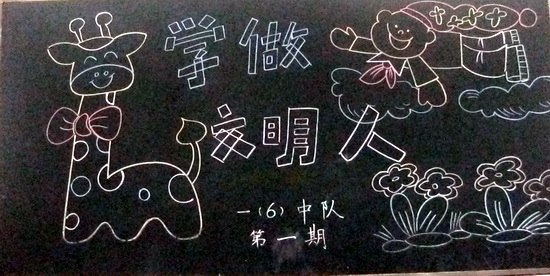 学做
文明人
一(6)中队
第一期